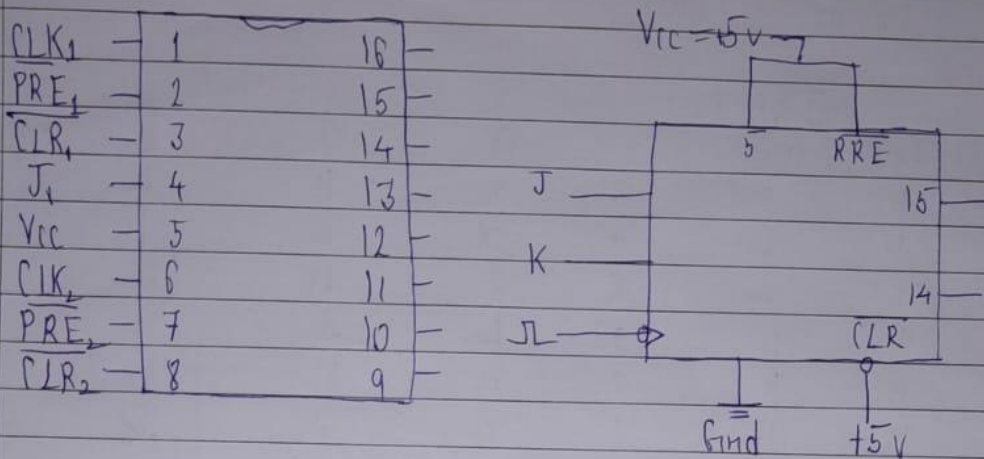 CLK₁ 1 16
P̅R̅E̅₁ 2 15
C̅L̅R̅₁ 3 14
J₁ 4 13
Vcc 5 12
CLK₂ 6 11
P̅R̅E̅₂ 7 10
C̅L̅R̅₂ 8 9
Vcc = 5v
5 R̅R̅E̅
J 15
K
14
C̅L̅R̅
Gnd +5v